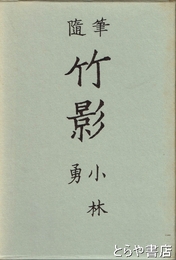 随筆
竹影
小林
勇
とらや書店